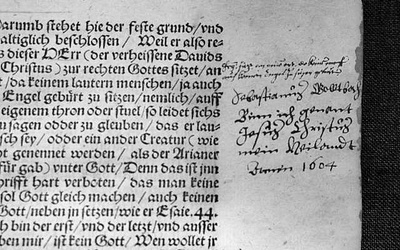 Darumb stehet hie der feste grund/vnd
altiglich beschlossen / Weil er also re-
s dieser HErr (der verheissene Dauids
Christus) zur rechten Gottes sitzet/an
t/da keinem lautern menschen/ja auch
Engel gebürt zu sitzen/nemlich/auff
eigenem thron oder stuel/so leidet sichs
u sagen odder zu gleuben/das er lau-
sch sey/odder ein ander Creatur (wie
ht genennet werden/als der Arianer
für gab) vnter Gott/Denn das ist jnn
hrifft hart verboten/das man keine
sol Gott gleich machen/auch keinen
Gott/neben jn setzen/wie er Esaie.44.
ch bin der erst/vnd der letzt/vnd ausser
ben mir/ist kein Gott/Wen wollet jr
Sebastianus
Bin ich genant
Jesus Christus
mein Heilandt
1604